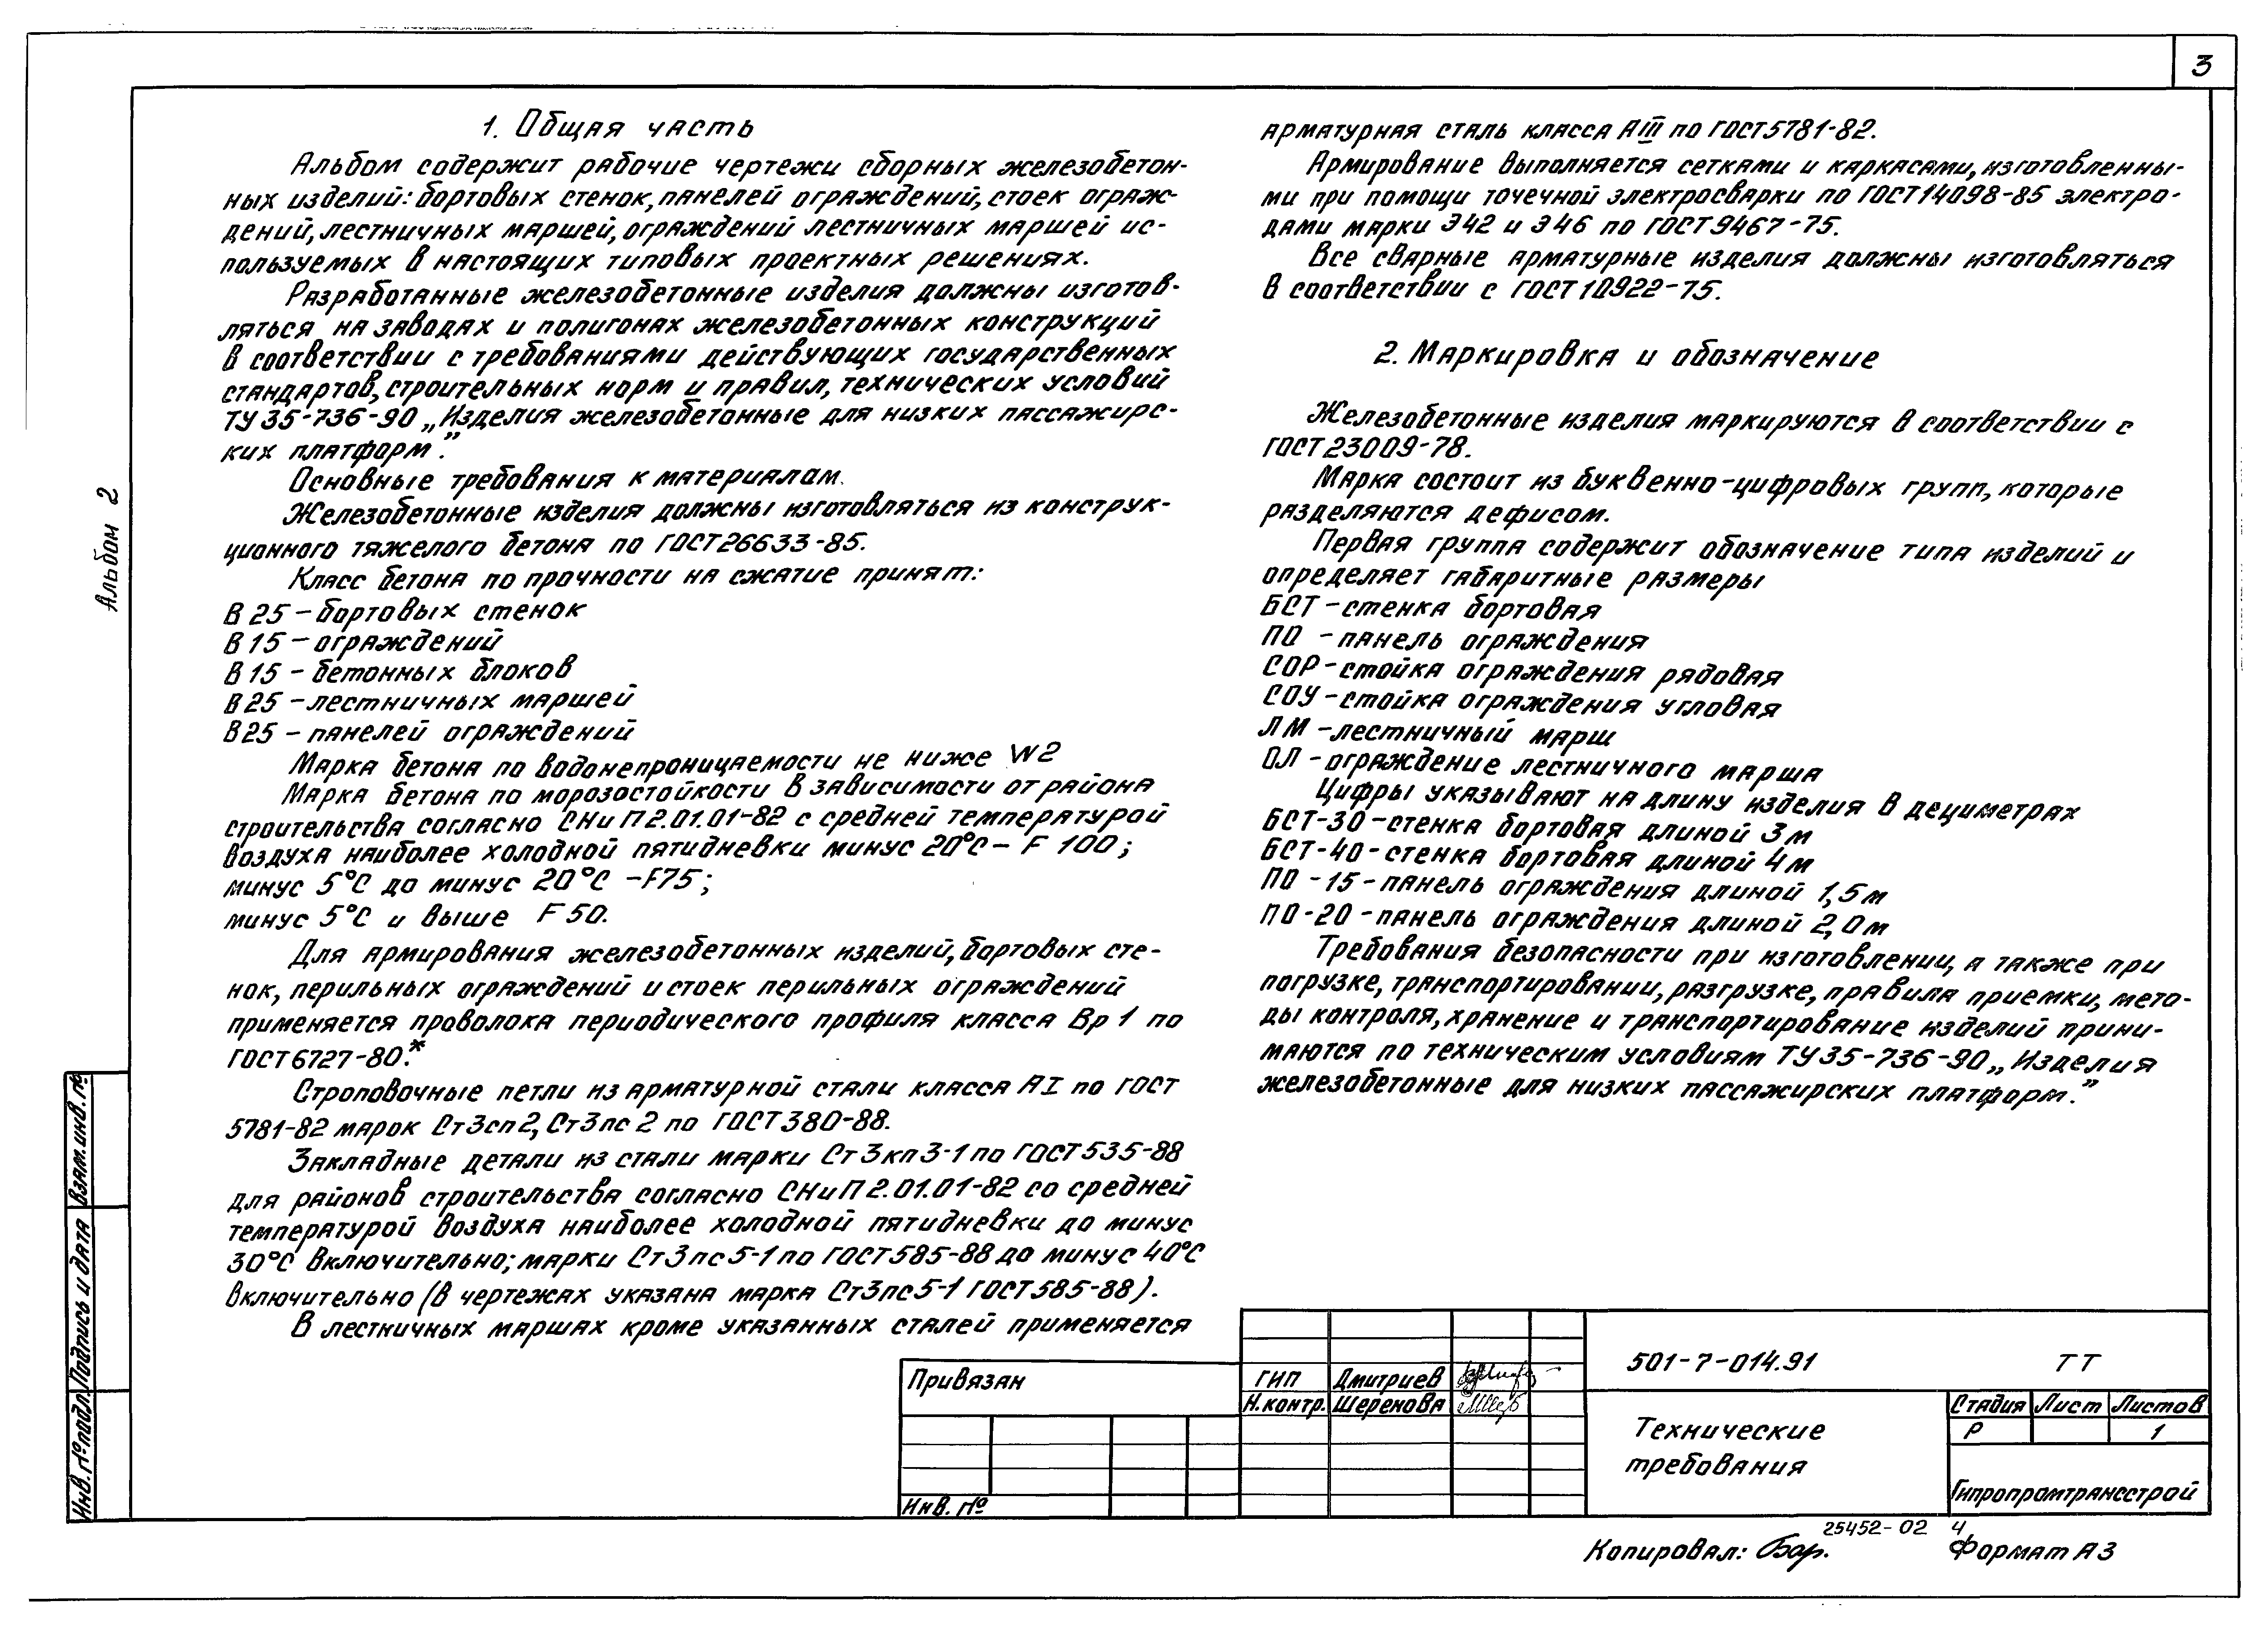 3
1. Общая часть
Альбом содержит рабочие чертежи сборных железобетон-
ных изделий: бортовых стенок, панелей ограждений, стоек ограж-
дений, лестничных маршей, ограждений лестничных маршей ис-
пользуемых в настоящих типовых проектных решениях.
Разработанные железобетонные изделия должны изготов-
ляться на заводах и полигонах железобетонных конструкций
в соответствии с требованиями действующих государственных
стандартов, строительных норм и правил, технических условий
ТУ 35-736-90 „Изделия железобетонные для низких пассажирс-
ких платформ".
Основные требования к материалам.
Железобетонные изделия должны изготовляться из конструк-
ционного тяжелого бетона по ГОСТ 26633-85.
Класс бетона по прочности на сжатие принят:
В 25 - бортовых стенок
В 15 - ограждений
В 15 - бетонных блоков
В 25 - лестничных маршей
В 25 - панелей ограждений
Марка бетона по водонепроницаемости не ниже W2
Марка бетона по морозостойкости в зависимости от района
строительства согласно СНиП 2.01.01-82 с средней температурой
воздуха наиболее холодной пятидневки минус 20°С - F 100;
минус 5°С до минус 20°С - F75;
минус 5°С и выше F 50.
Для армирования железобетонных изделий, бортовых сте-
нок, перильных ограждений и стоек перильных ограждений
применяется проволока периодического профиля класса Вр 1 по
ГОСТ 6727-80.*
Строповочные петли из арматурной стали класса АI по ГОСТ
5781-82 марок Ст3сп2, Ст3пс 2 по ГОСТ 380-88.
Закладные детали из стали марки Ст3кп3-1 по ГОСТ 535-88
для районов строительства согласно СНиП 2.01.01-82 со средней
температурой воздуха наиболее холодной пятидневки до минус
30°С включительно; марки Ст3пс5-1 по ГОСТ 585-88 до минус 40°С
включительно (в чертежах указана марка Ст3пс5-1 ГОСТ 585-88).
В лестничных маршах кроме указанных сталей применяется
арматурная сталь класса АIII по ГОСТ 5781-82.
Армирование выполняется сетками и каркасами, изготовленны-
ми при помощи точечной электросварки по ГОСТ 14098-85 электро-
дами марки Э42 и Э46 по ГОСТ 9467-75.
Все сварные арматурные изделия должны изготовляться
в соответствии с ГОСТ 10922-75.
2. Маркировка и обозначение
Железобетонные изделия маркируются в соответствии с
ГОСТ 23009-78.
Марка состоит из буквенно-цифровых групп, которые
разделяются дефисом.
Первая группа содержит обозначение типа изделий и
определяет габаритные размеры
БСТ - стенка бортовая
ПО - панель ограждения
СОР - стойка ограждения рядовая
СОУ - стойка ограждения угловая
ЛМ - лестничный марш
ОЛ - ограждение лестничного марша
Цифры указывают на длину изделия в дециметрах
БСТ-30 - стенка бортовая длиной 3 м
БСТ-40 - стенка бортовая длиной 4 м
ПО - 15 - панель ограждения длиной 1,5 м
ПО - 20 - панель ограждения длиной 2,0 м
Требования безопасности при изготовлении, а также при
погрузке, транспортировании, разгрузке, правила приемки, мето-
ды контроля, хранение и транспортирование изделий прини-
маются по техническим условиям ТУ 35-736-90 „Изделия
железобетонные для низких пассажирских платформ."
Альбом 2
Взам. инв. №
Подпись и дата
Инв. № подл.
Привязан
Инв. №
ГИП Дмитриев
Н. контр. Шеренова
501-7-014.91 ТТ
Технические
требования
Стадия Лист Листов
Р 1
Гипропромтрансстрой
25452-02 4
Копировал: Бор. Формат А3